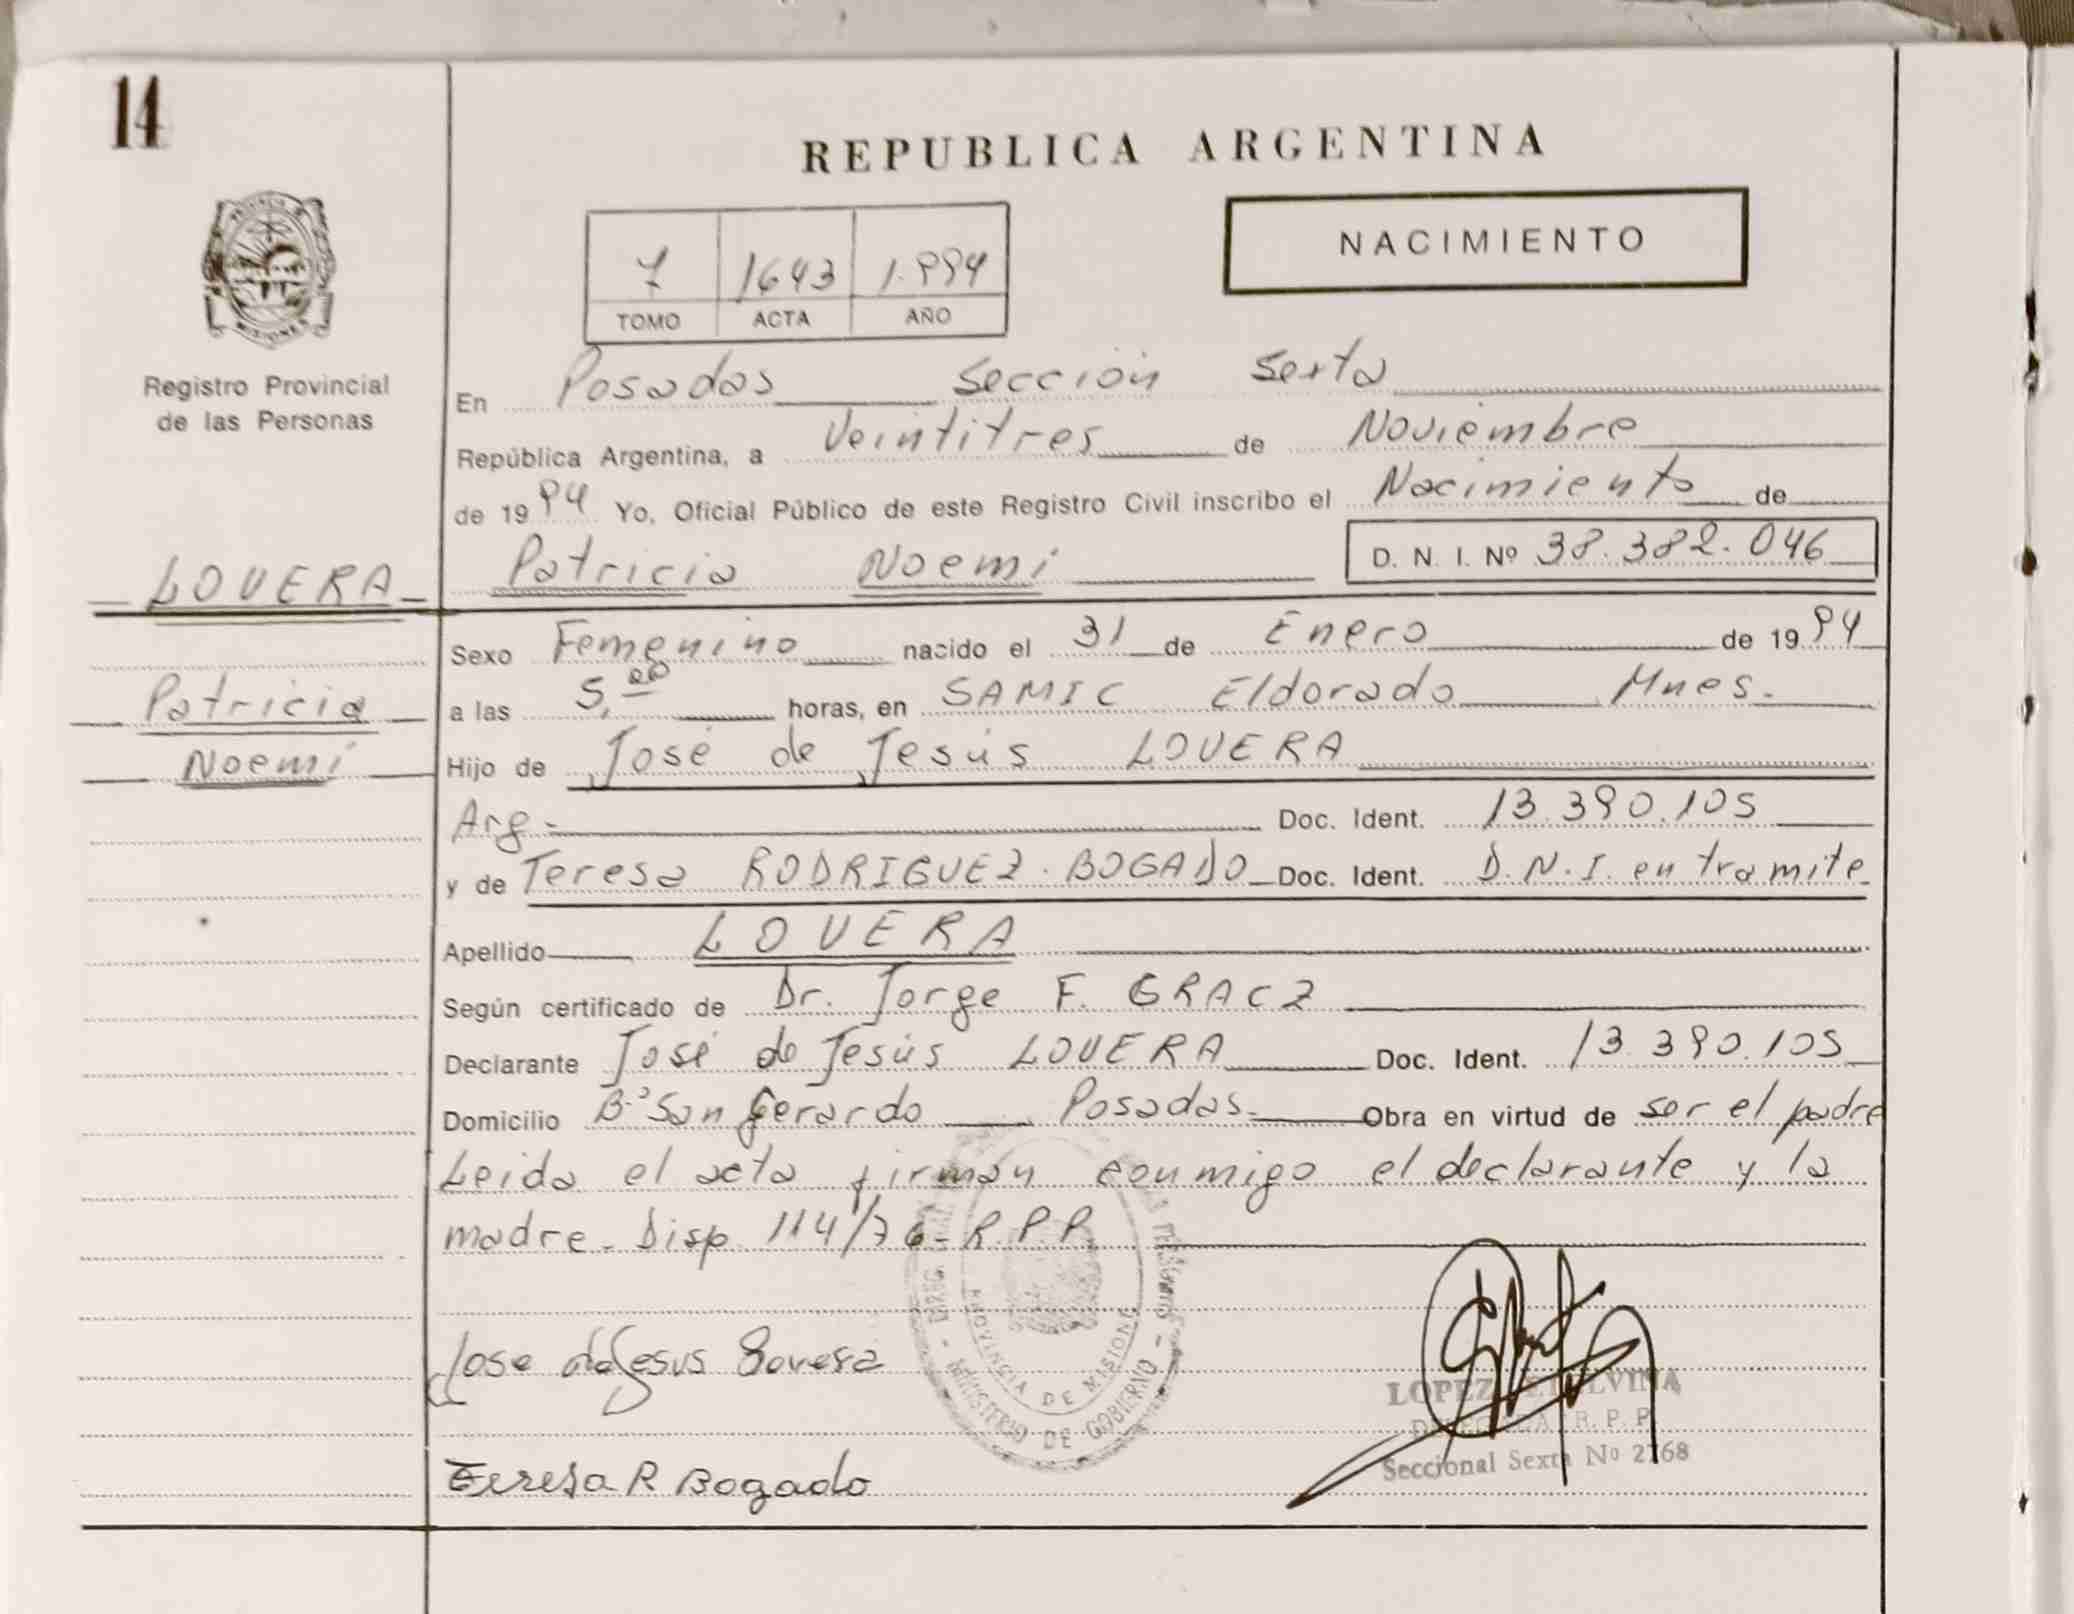 14
REPUBLICA ARGENTINA
NACIMIENTO
7 1643 1.994
TOMO ACTA AÑO
PROVINCIA DE MISIONES
Registro Provincial
de las Personas
En Posadas Sección Sexta
República Argentina, a Veintitres de Noviembre
de 1994 Yo, Oficial Público de este Registro Civil inscribo el Nacimiento de
LOVERA Patricia Noemí D. N. I. Nº 38.382.046
Sexo Femenino nacido el 31 de Enero de 1994
Patricia
a las 5,00 horas, en SAMIC Eldorado Mnes.
Noemí
Hijo de José de Jesús LOVERA
Arg. Doc. Ident. 13.390.105
y de Teresa RODRIGUEZ BOGADO Doc. Ident. D.N.I. en tramite
Apellido LOVERA
Según certificado de Dr. Jorge F. GRACZ
Declarante José de Jesús LOVERA Doc. Ident. 13.390.105
Domicilio Bº San Gerardo Posadas. Obra en virtud de ser el padre
Leida el acta firman conmigo el declarante y la
madre. Disp. 114/76 - R.P.P.
PROVINCIA DE MISIONES
MINISTERIO DE GOBIERNO
Jose de Jesus Lovera
LOPEZ
Seccional Sexta Nº 2768
Teresa R Bogado